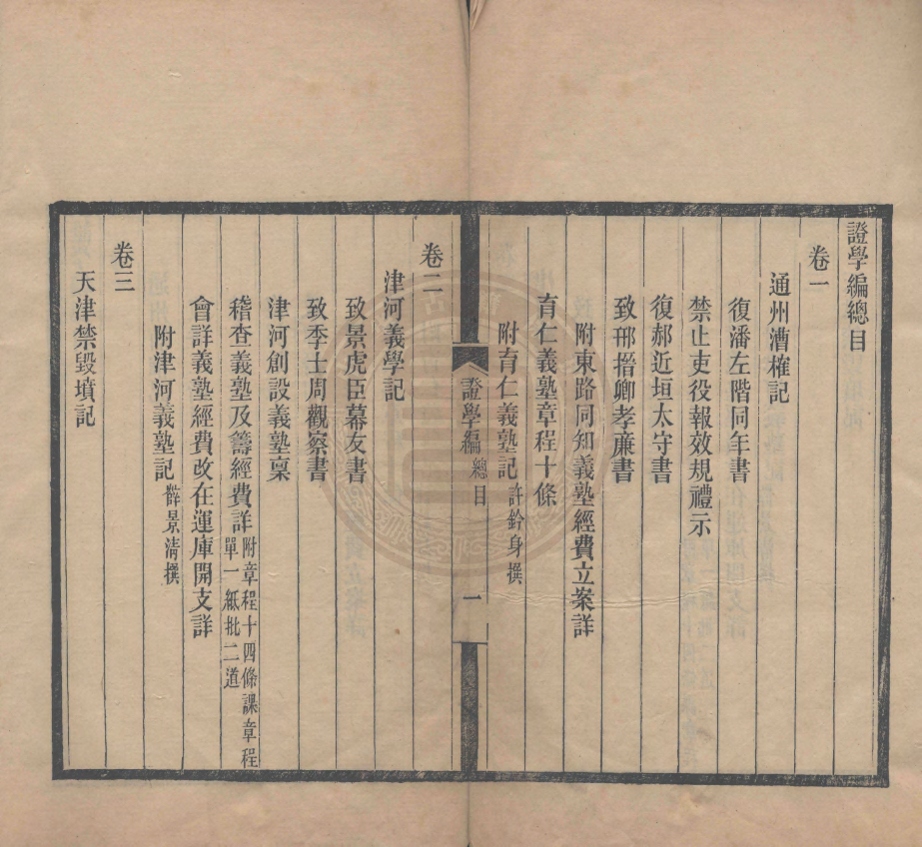 證學編總目
卷一
通州漕榷記
復潘左階同年書
禁止吏役報效規禮示
復郝近垣太守書
致邢搢卿孝廉書
附東路同知義塾經費立案詳
育仁義塾章程十條
附育仁義塾記 許鈐身撰
證學編 總目 一
卷二
津河義學記
致景虎臣幕友書
致季士周觀察書
津河創設義塾稟
稽查義塾及籌經費詳 附章程十四條課章程單一紙批二道
會詳義塾經費改在運庫開支詳
附津河義塾記 薛景清撰
卷三
天津禁毀墳記